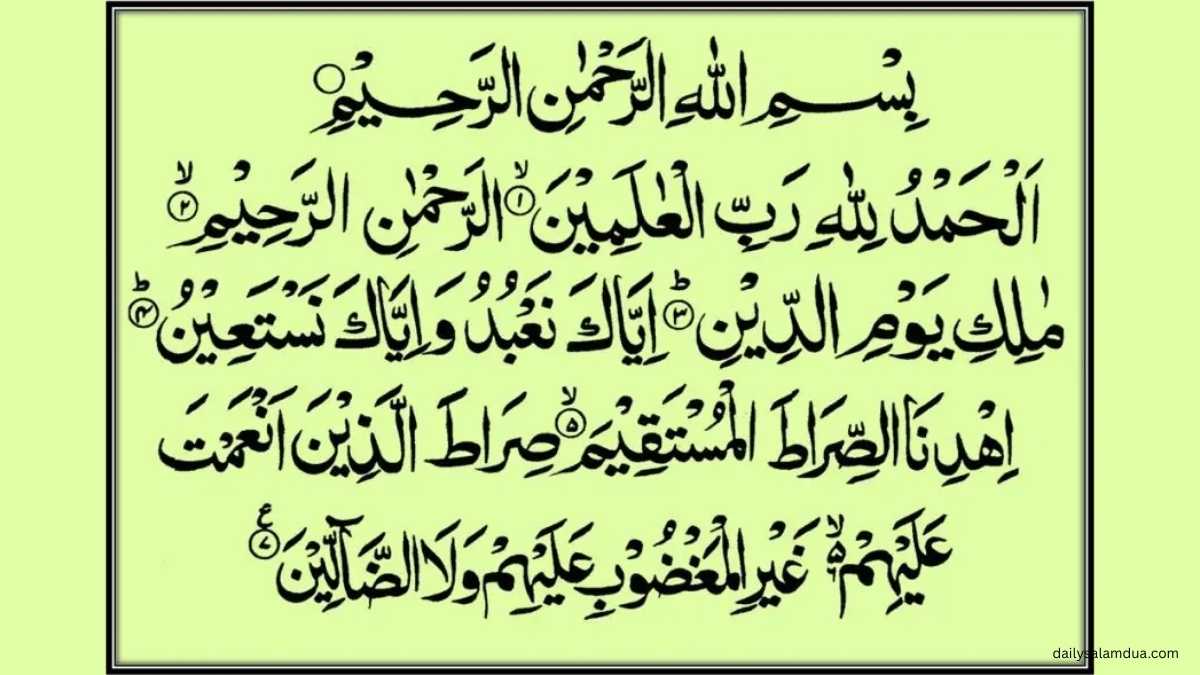 بِسْمِ اللهِ الرَّحْمٰنِ الرَّحِيْمِ ۝
اَلْحَمْدُ لِلّٰهِ رَبِّ الْعٰلَمِيْنَ ۙ﴿۱﴾ الرَّحْمٰنِ الرَّحِيْمِ ۙ﴿۲﴾
مٰلِكِ يَوْمِ الدِّيْنِ ؕ﴿۳﴾ اِيَّاكَ نَعْبُدُ وَاِيَّاكَ نَسْتَعِيْنُ ؕ﴿۴﴾
اِهْدِنَا الصِّرَاطَ الْمُسْتَقِيْمَ ۙ﴿۵﴾ صِرَاطَ الَّذِيْنَ اَنْعَمْتَ
عَلَيْهِمْ ۙ۬ غَيْرِ الْمَغْضُوْبِ عَلَيْهِمْ وَلَا الضَّآلِّيْنَ ﴿۷﴾ ع
dailysalamdua.com